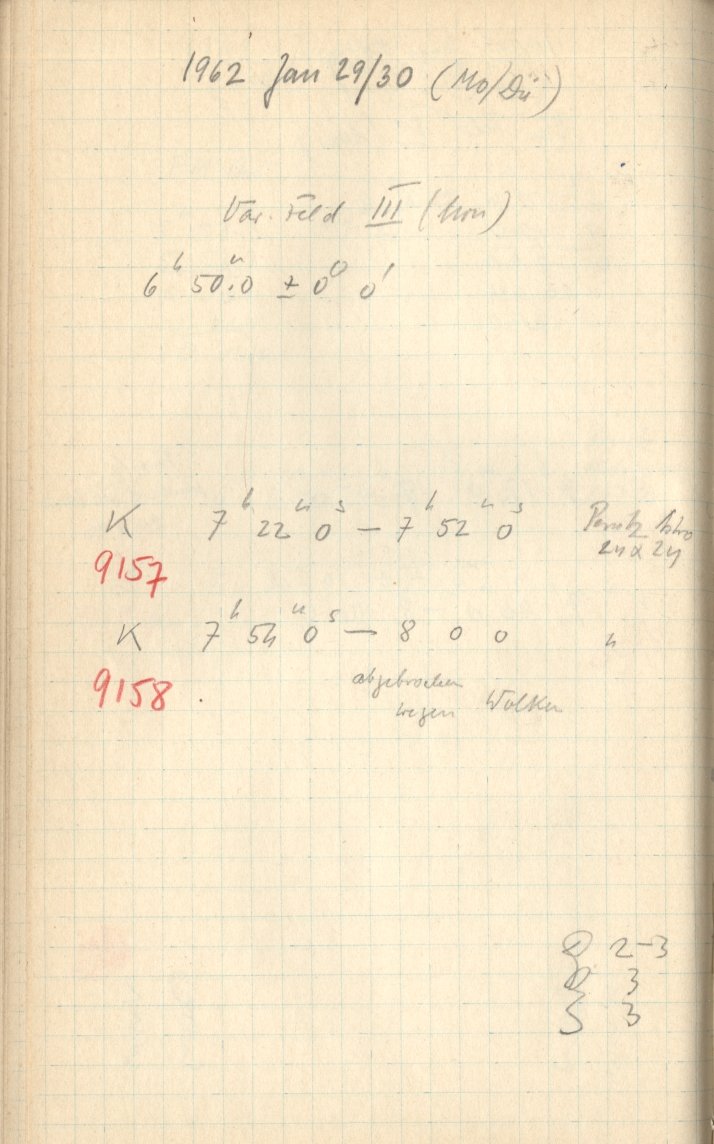 1962 Jan 29/30 (Mo/Di)
Var. Feld III (Mon)
6ʰ 50ᵐ.0 ± 0⁰ 0'
K 7ʰ 22ᵐ 0ˢ — 7ʰ 52ᵐ 0ˢ Perutz Astro
9157 24 x 24
K 7ʰ 54ᵐ 0ˢ — 8 0 0 "
9158 .
abgebrochen
wegen Wolken
2-3
3
S 3